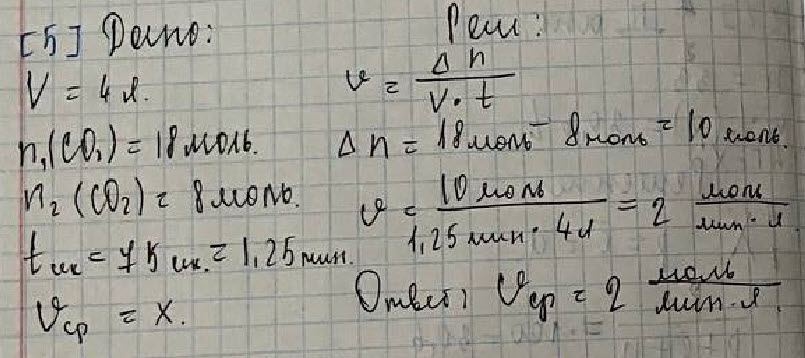 [5] Дано:
V = 4 л.
n₁(CO₂) = 18 моль.
n₂(CO₂) = 8 моль.
t = 75 = 1,25 мин.
υср = x.
Реш:
υ = Δn / V · t
Δn = 18 моль - 8 моль = 10 моль.
υ = 10 моль / 1,25 мин · 4 л = 2 моль / мин · л
Ответ: υср = 2 моль / мин · л.